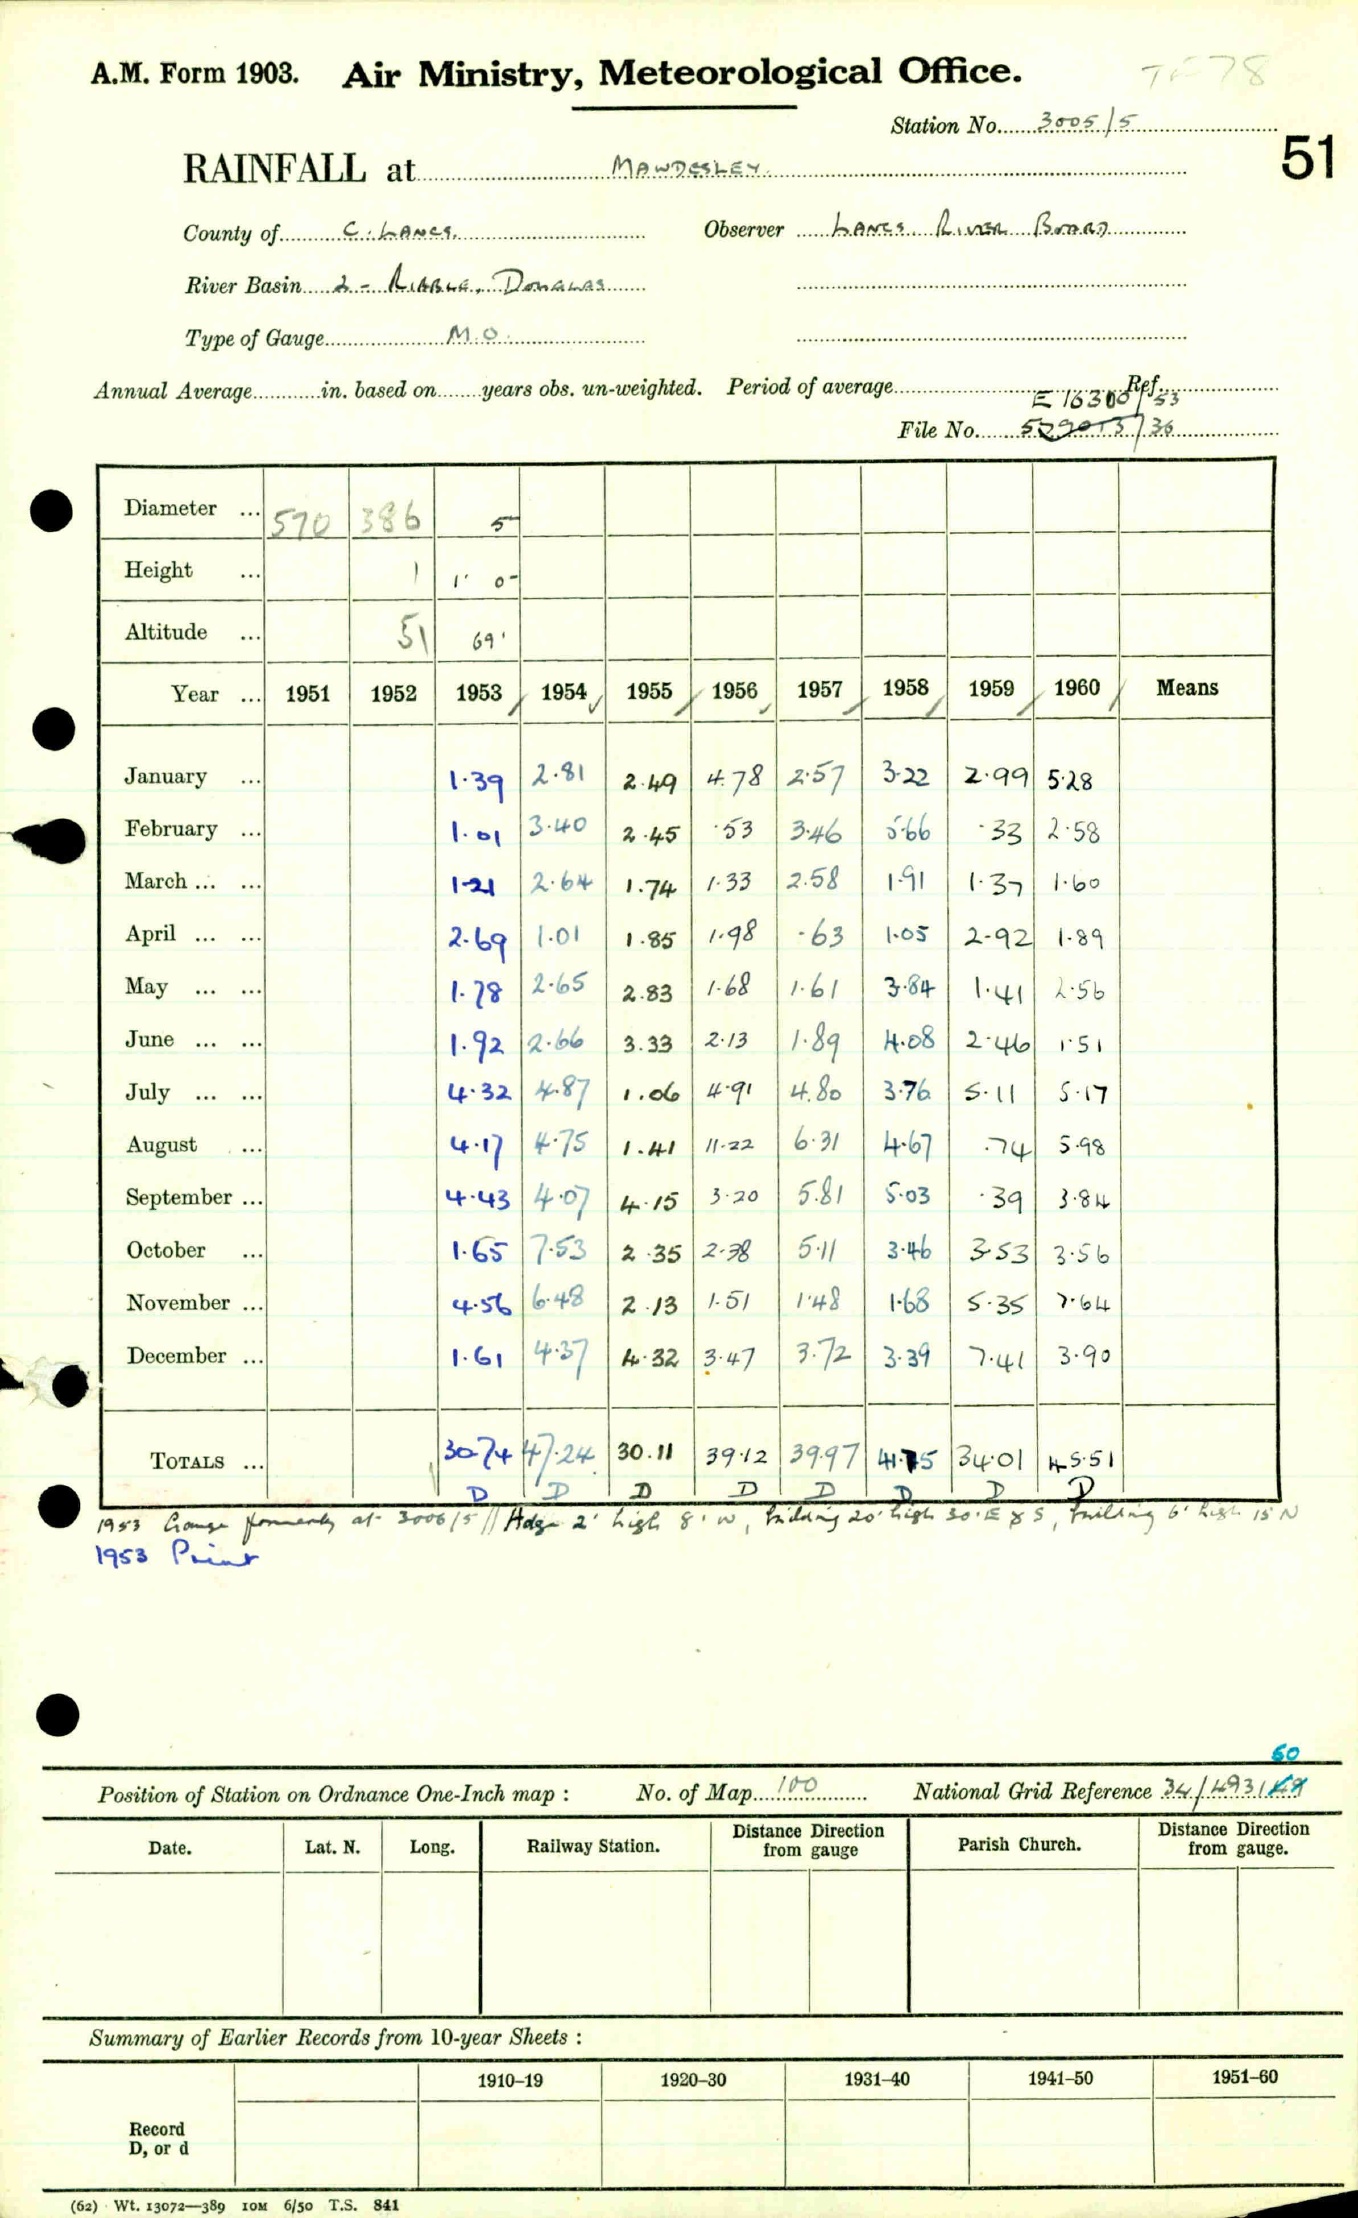 A.M. Form 1903. Air Ministry, Meteorological Office.
Station No. 3005/5
51
RAINFALL at MAWDESLEY.
County of C. LANCS. Observer LANCS. RIVER BOARD
River Basin 2 - RIBBLE, DOUGLAS
Type of Gauge M.O.
Annual Average in. based on years obs. un-weighted. Period of average Ref.
E 16300/53
File No. /36
Diameter ... 570 386 5
Height ... 1 1' 0"
Altitude ... 51 69'
Year ... 1951 1952 1953 1954 1955 1956 1957 1958 1959 1960 Means
January ... 1.39 2.81 2.49 4.78 2.57 3.22 2.99 5.28
February ... 1.01 3.40 2.45 .53 3.46 5.66 .33 2.58
March ... ... 1.21 2.64 1.74 1.33 2.58 1.91 1.37 1.60
April ... ... 2.69 1.01 1.85 1.98 .63 1.05 2.92 1.89
May ... ... 1.78 2.65 2.83 1.68 1.61 3.84 1.41 2.56
June ... ... 1.92 2.66 3.33 2.13 1.89 4.08 2.46 1.51
July ... ... 4.32 4.87 1.06 4.91 4.80 3.76 5.11 5.17
August ... 4.17 4.75 1.41 11.22 6.31 4.67 .74 5.98
September ... 4.43 4.07 4.15 3.20 5.81 5.03 .39 3.84
October ... 1.65 7.53 2.35 2.38 5.11 3.46 3.53 3.56
November ... 4.56 6.48 2.13 1.51 1.48 1.68 5.35 7.64
December ... 1.61 4.37 4.32 3.47 3.72 3.39 7.41 3.90
TOTALS ... 30.74 47.24 30.11 39.12 39.97 41.75 34.01 45.51
D D D D D D D D
1953 Gauge formerly at 3006/5 // Hdge 2' high 8' W, building 20' high 30' E & S, building 6' high 15' N
1953 Print
50
Position of Station on Ordnance One-Inch map : No. of Map 100 National Grid Reference 34/493149
Date. Lat. N. Long. Railway Station. Distance Direction from gauge Parish Church. Distance Direction from gauge.
Summary of Earlier Records from 10-year Sheets :
1910–19 1920–30 1931–40 1941–50 1951–60
Record
D, or d
(62) Wt. 13072—389 10M 6/50 T.S. 841